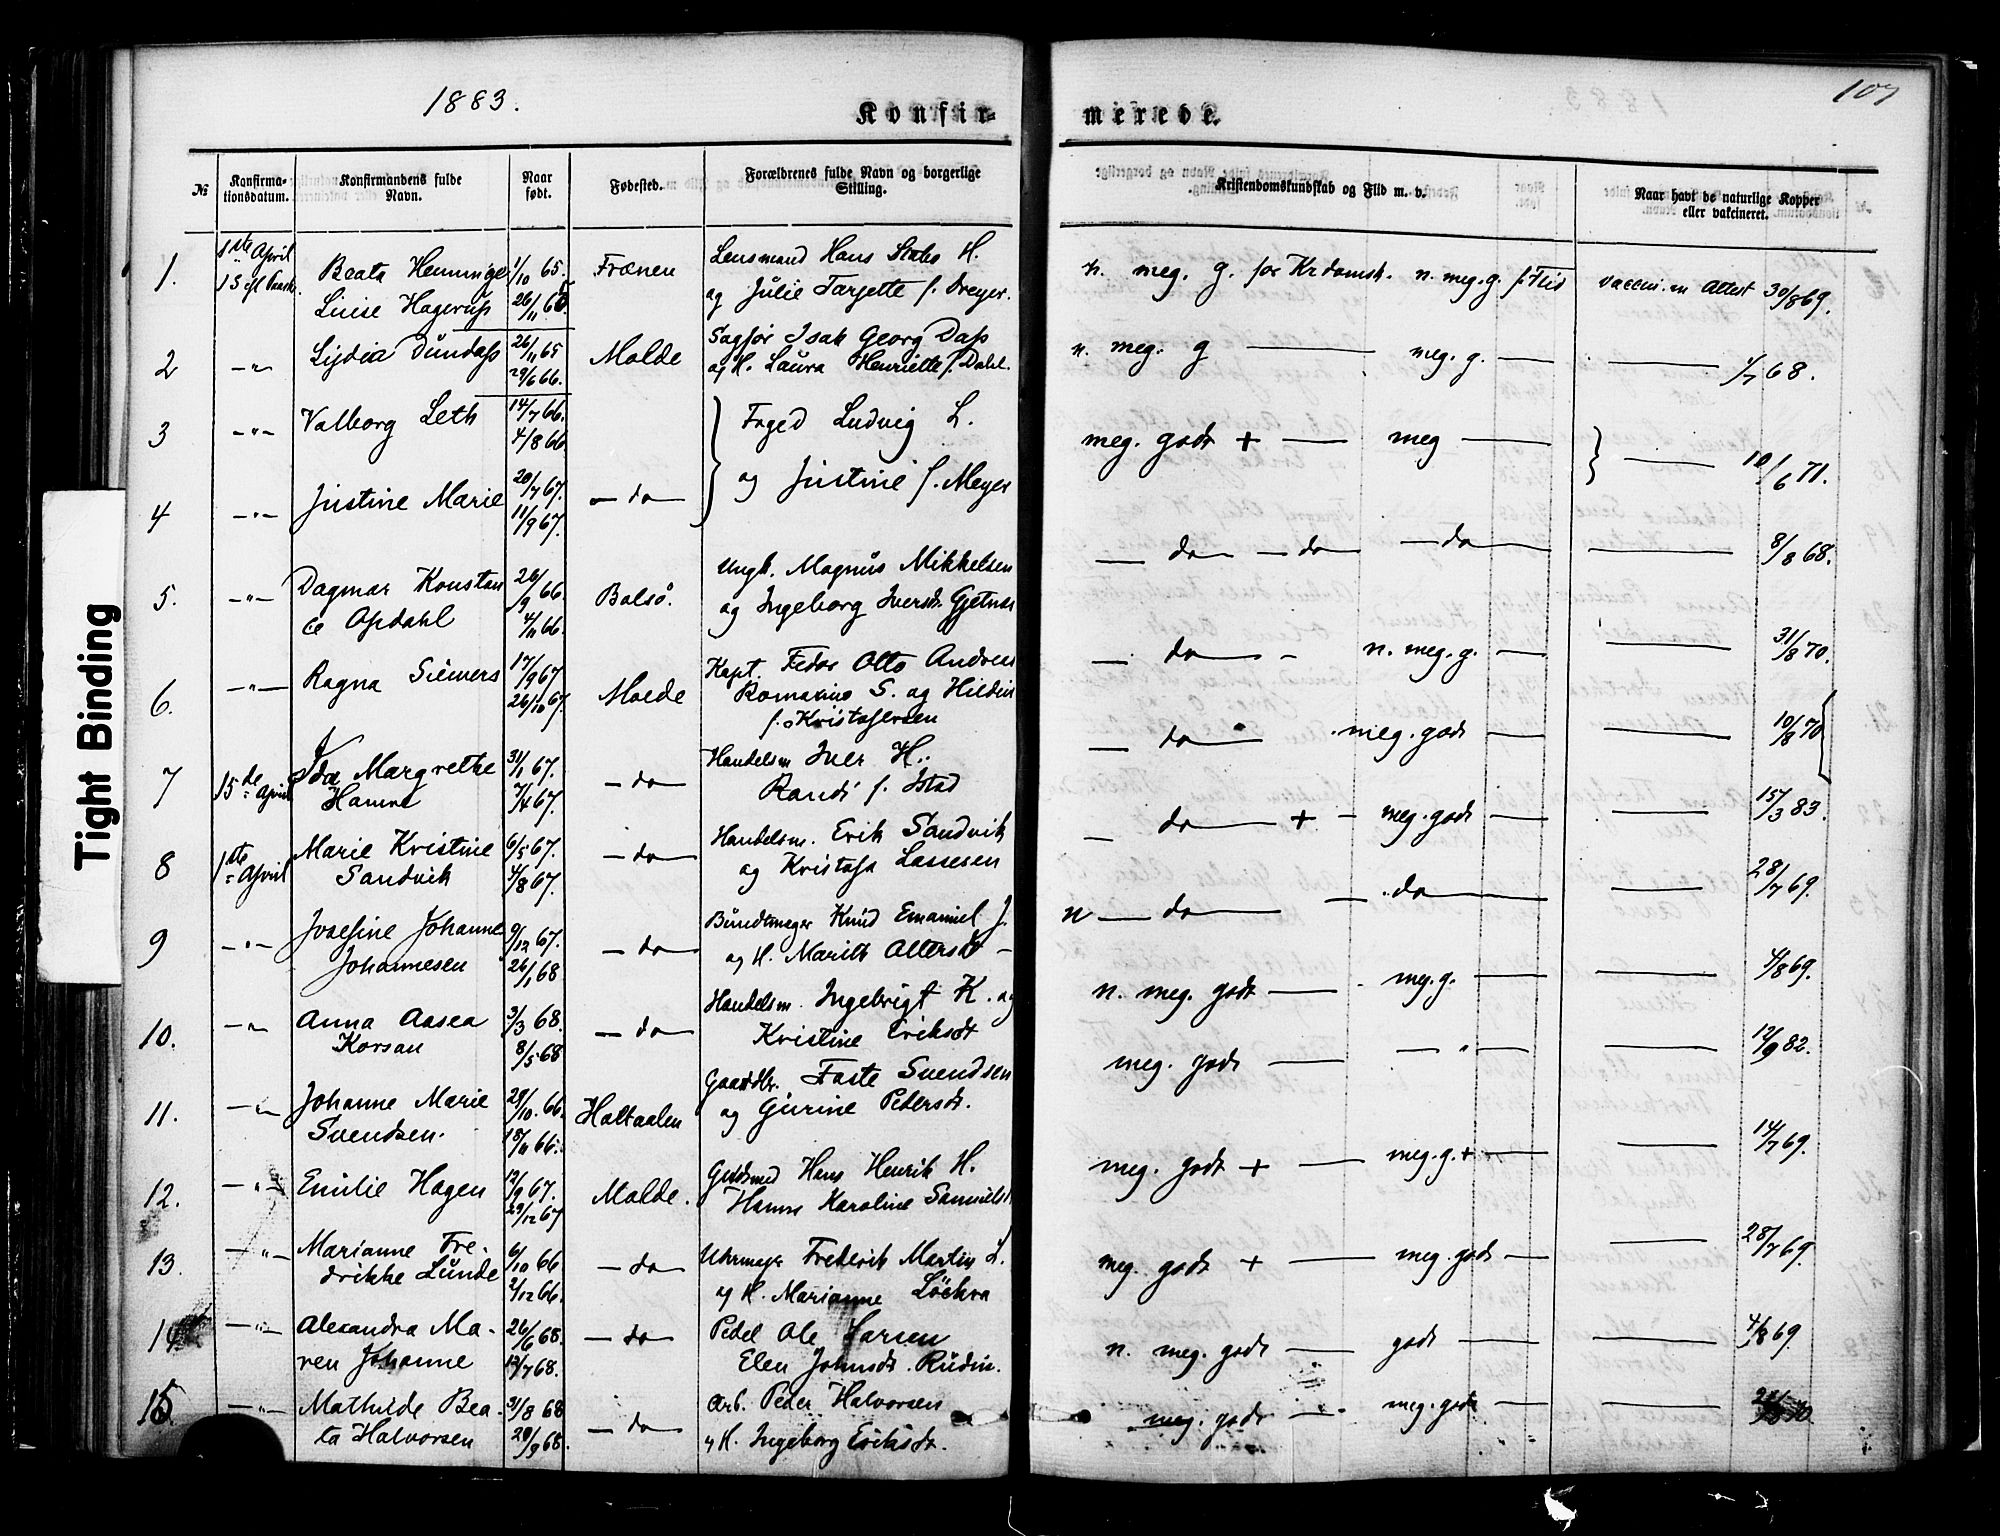 1883.
107
Konfir-
merede.
№
Konfirma-
tionsdatum.
Konfirmandens fulde
Navn.
Naar
født.
Fødested.
Forældrenes fulde Navn og borgerlige
Stilling.
Kristendomskundskab og Flid m. v.
Naar havt de naturlige Kopper
eller vakcineret.
1. 1ste April Beata Henninge 1/10 65. Frænen Lensmand Hans H. n. meg. g. for Krdomsk. n. meg. g. f. Flid vaccin. en Attest 30/8 69.
Luise Hagerup 26/11 65. og Julie Tarjette f. Dreyer.
2 —"— Lydia Dundas 26/11 65 Molde Sagfør Isak Georg Dass n. meg. g — meg. g. — — 4/7 68.
29/6 66. og H. Laura Henriette f. Dahl.
3 —"— Valborg Leth 14/7 66. Foged Ludvig L. meg. godt + — meg — — 10/6 71.
4/8 66
4 —"— Justine Marie 20/7 67. — do — og Justine f. Meyer — do — do — do — — 8/8 68.
11/9 67.
5. —"— Dagmar Konstan 26/9 66. Bolsø. Ungk. Magnus Mikkelsen — do — n. meg. g. — — 31/8 70.
ce Opdahl 4/11 66. og Ingeborg Iversdr. Gjetnæs
6. —"— Ragna Siewers 17/9 67 Molde Kapt. Fedor Otto Andreas — do — meg. godt — — 10/8 70
26/10 67. Romarino S. og Hildin
f. Kristofersen
7 15de April Ida Margrethe 31/1 67. — do — Handelsm Iver H. — do — + — meg. godt — 15/3 83.
Hamre 7/4 67. Randi f. Istad
8 1ste April Marie Kristine 6/5 67. — do — Handelsm. Erik Sandvik n — do — — do — — 28/7 69.
Sandvik 4/8 67. og Kristofa Lassesen
9 —"— Josefine Johanne 9/12 67. — do — Bundtmager Knud Emanuel J. n. meg. godt — meg. g. — — 4/8 69.
Johannesen 26/1 68. og H. Marith —
10. —"— Anna Aasea 3/3 68. — do — Handelsm. Ingebrigt K. og meg. godt — — " — — 12/9 82.
Korsan 8/5 68 Kristine Eriksdt
11. —"— Johanne Marie 29/10. 66. Holtaalen Gaardbr. Faste Svendsen meg. godt + — meg. g. + — — 14/7 69.
Svendsen. 18/11 66. og Gurine Pedersdt.
12. —"— Emilie Hagen 12/9 67. Molde. Guldsmed Hans Henrik H. meg. godt + — meg. godt — — 28/7 69.
29/12 67 Karoline Samuelsd
13. —"— Marianne Fre- 6/10 66 — do — Uhrmager Frederik Martin L. n. meg. godt — godt — — 4/8 69.
drikke Lunde 2/12 66. og H. Marianne
14 —"— Alexandra Ma- 26/6 68. — do — Pedel Ole Larsen meg. godt — meg. godt —
ren Johanne 12/7 68. Elen Johnsdt. Rudin.
15 —"— Mathilde Bea- 31/8 68 — do — Arb. Peder Halvorsen
ta Halvorsen 20/9 68. og H. Ingeborg Eriksdt.
Tight Binding